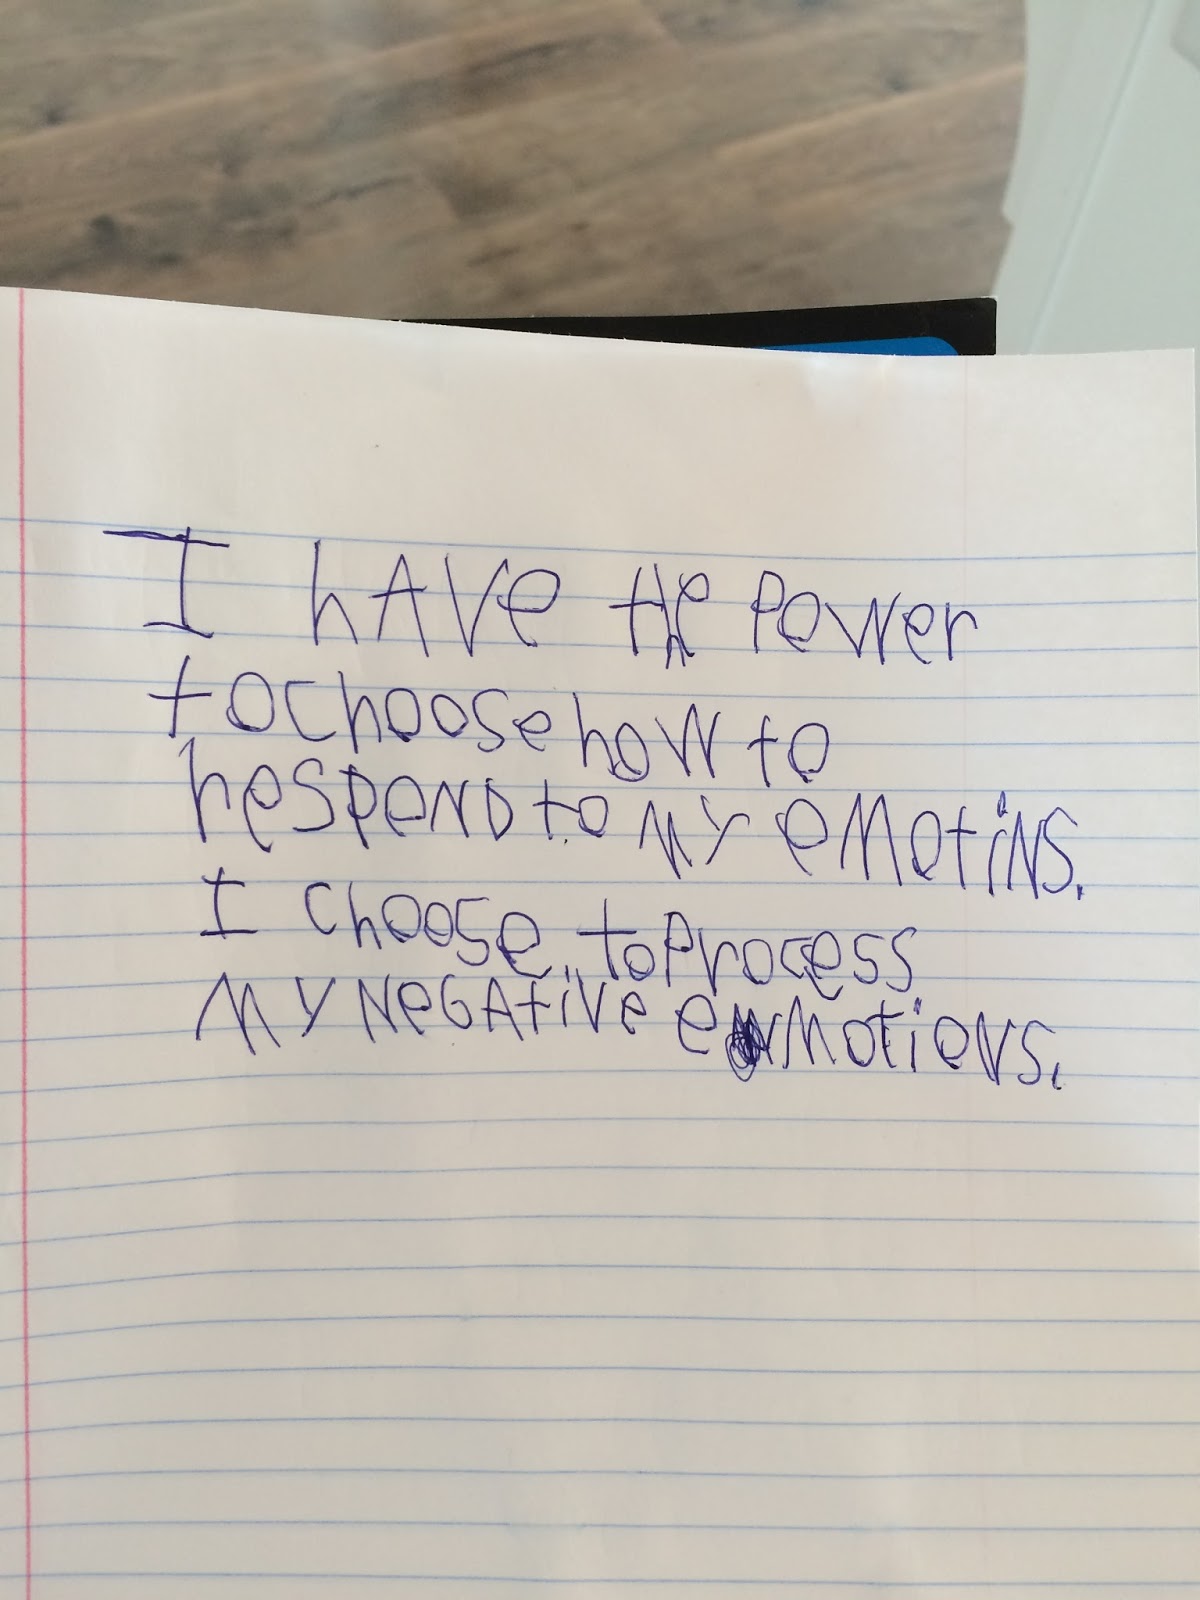 I hAVe the Power
to choose how to
respend to My eMotiNS.
I choose to Process
My NeGAtive eMotieNS.